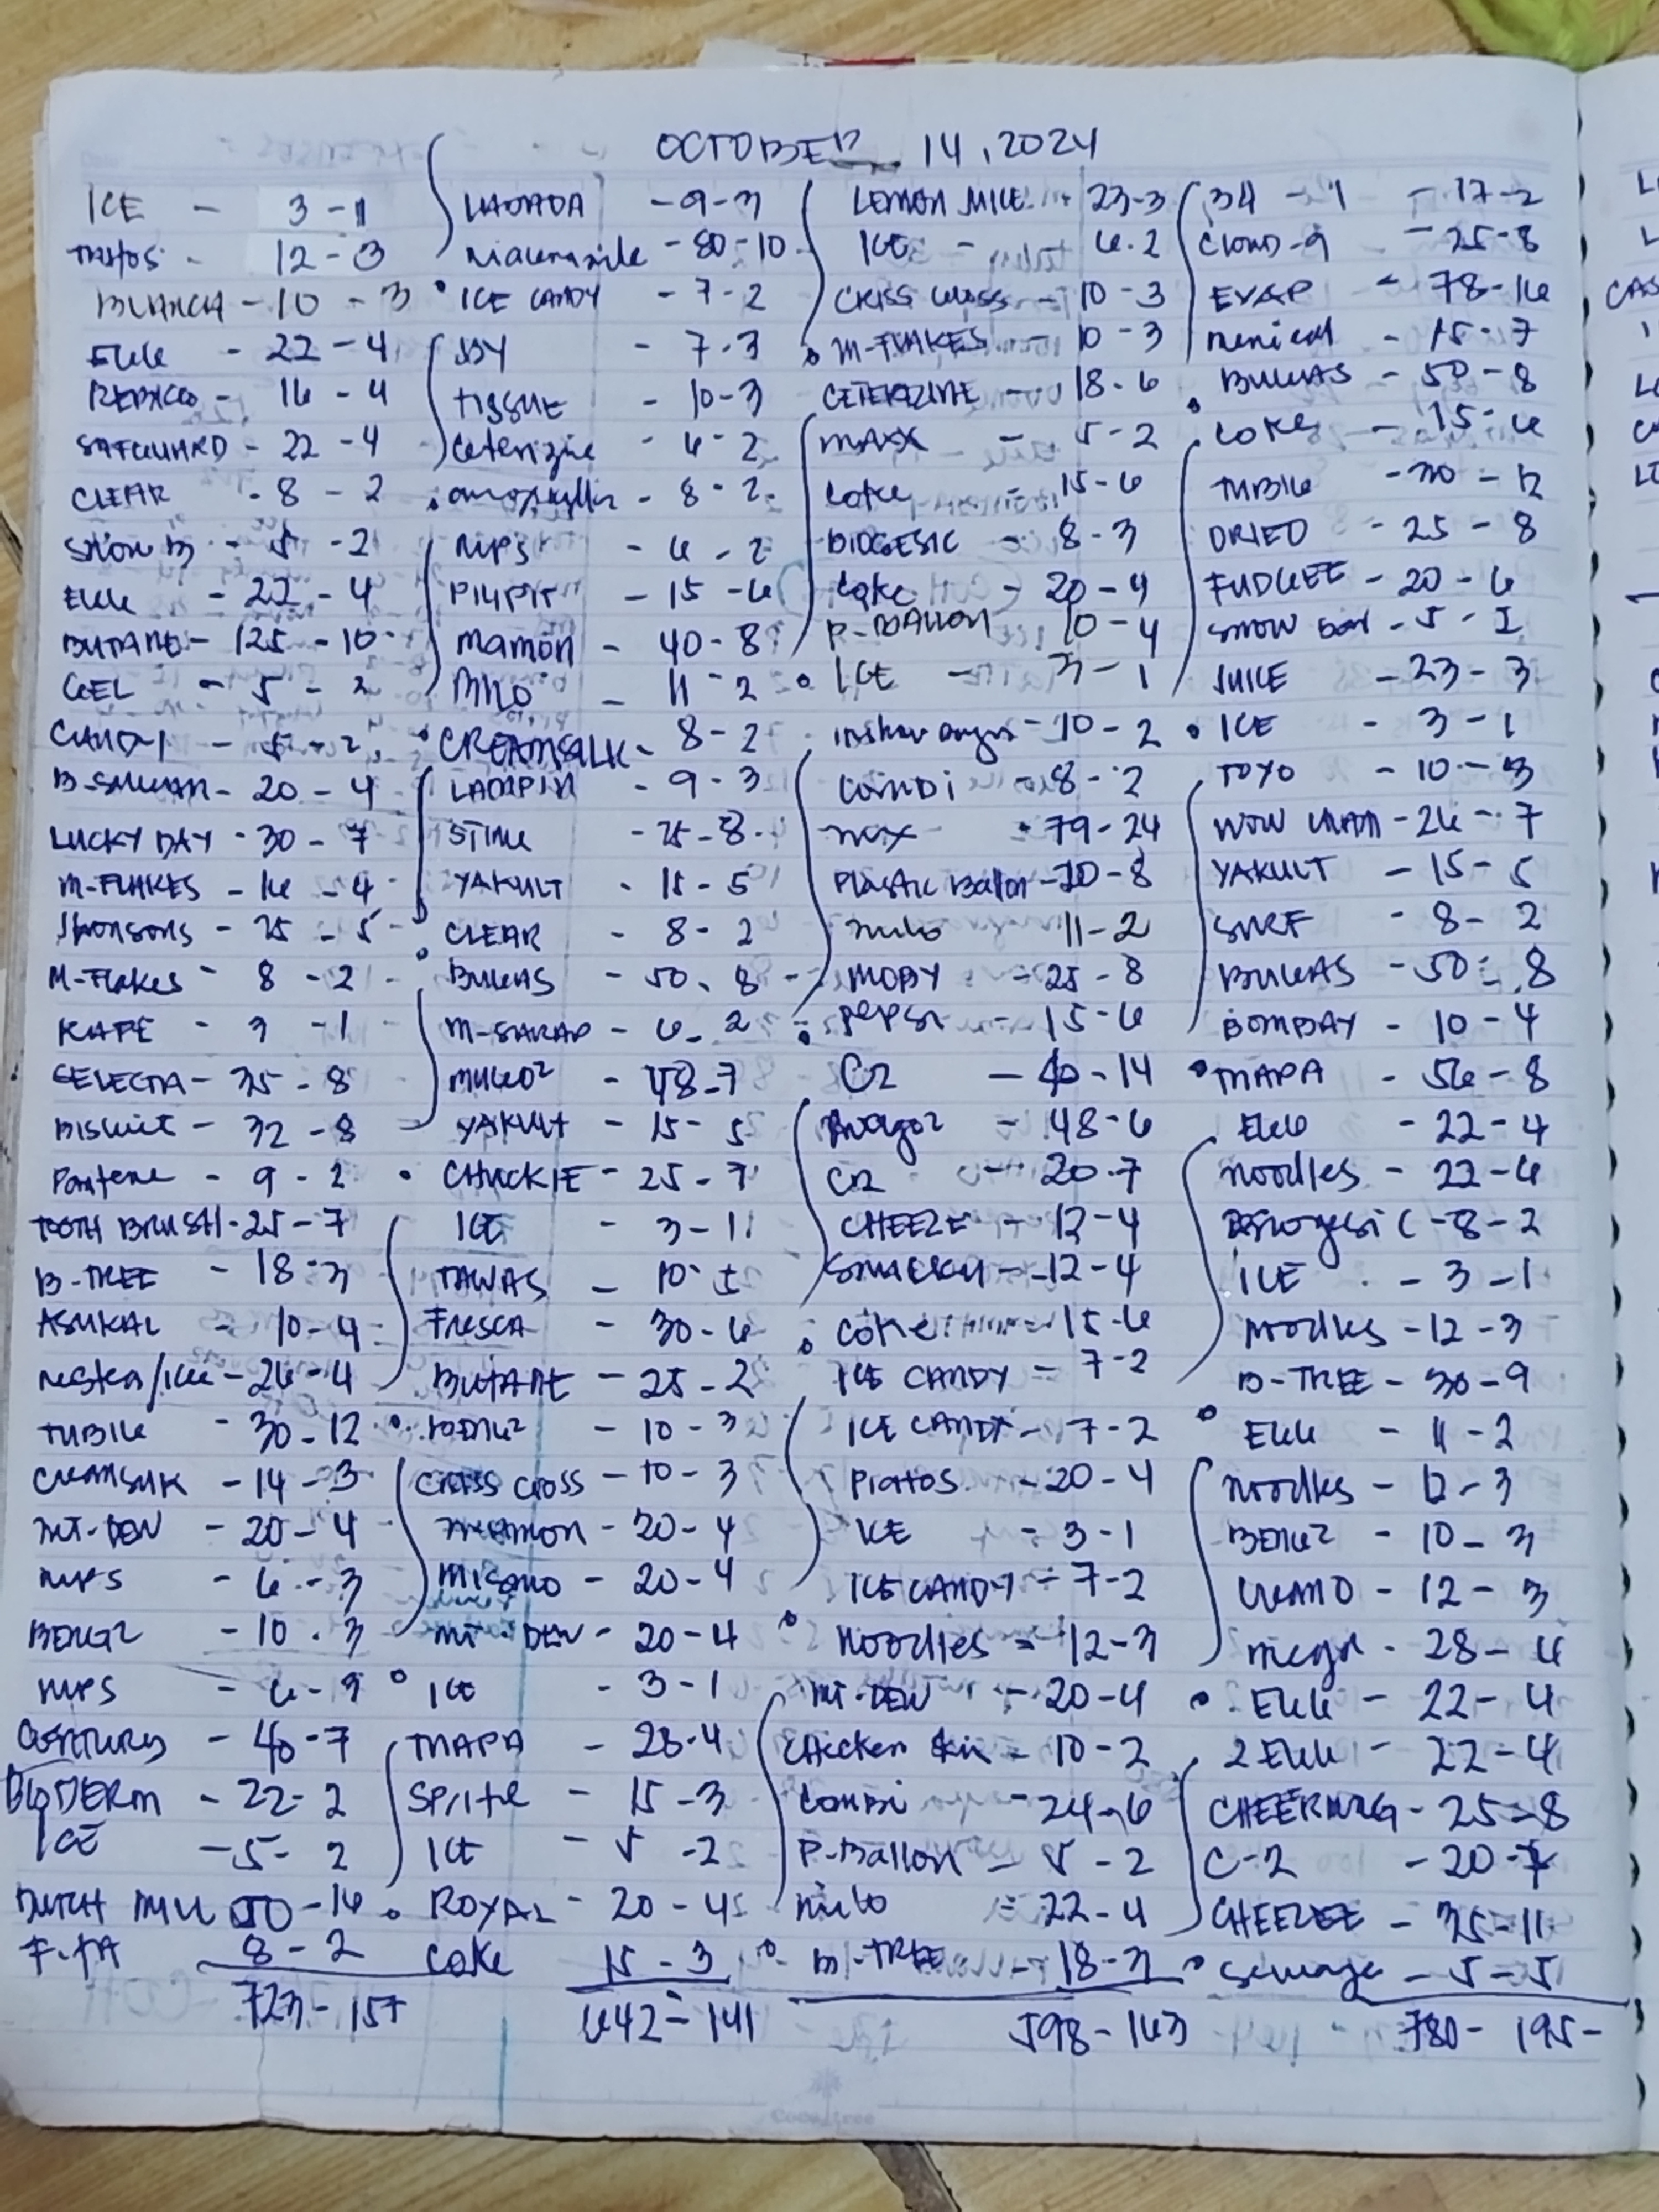 OCTOBER 14, 2024
ICE - 3-1
12-3
BLANCA - 10-3
EGG - 22-4
REBISCO - 16-4
SAFEGUARD - 22-4
CLEAR - 8-2
SNOW B - 5-2
EGG - 22-4
BUTANE - 125-10
GEL - 5-2
CANDY - 5-2
20-4
LUCKY DAY - 30-7
M-FLAKES - 16-4
25-5
M-Flakes - 8-2
KAPE - 3-1
SELECTA - 35-8
BISCUIT - 32-8
Pantene - 9-2
TOOTH BRUSH - 25-7
B-TREE - 18-3
ASUKAL - 10-4
26-4
TUBIG - 30-12
CREAMSILK - 14-3
MT-DEW - 20-4
MPS - 6-3
BENG2 - 10-3
MPS - 6-3
CENTURY - 40-7
BIODERM - 22-2
ICE - 5-2
DUTCH MILL 50-16
8-2
723-157
LABADA - 9-3
80-10
ICE CANDY - 7-2
JOY - 7-3
TISSUE - 10-3
Ceterizine - 6-2
8-2
MPS - 6-2
PILIPIT - 15-6
mamon - 40-8
MILO - 11-2
CREAMSILK - 8-2
LAMPIN - 9-3
25-8
YAKULT - 15-5
CLEAR - 8-2
BIGAS - 50-8
M-SARAP - 6-2
48-7
YAKULT - 15-5
CHUCKIE - 25-7
ICE - 3-1
TAWAS - 10-
FRESCA - 30-6
BUTANE - 25-2
BENG2 - 10-3
CRISS CROSS - 10-3
mamon - 20-4
20-4
MT-DEW - 20-4
ICE - 3-1
MAPA - 28-4
Sprite - 15-3
ICE - 5-2
ROYAL - 20-4
coke 15-3
642-141
LEMON JUICE 23-3
ICE - 6-2
CRISS CROSS - 10-3
M-FLAKES - 10-3
CETERIZINE - 18-6
MAXX - 5-2
Coke - 15-6
BIOGESIC - 8-3
Coke - 20-4
P-BALLON 10-4
ICE - 3-1
10-2
COMBI - 8-2
MIX - 79-24
Plastic Ballon - 20-8
milo 11-2
MOBY - 25-8
PEPSI - 15-6
C2 - 40-14
48-6
C2 - 20-7
CHEEZE - 12-4
SMACKY - 12-4
COKE - 15-6
ICE CANDY - 7-2
ICE CANDY - 7-2
Piattos - 20-4
ICE - 3-1
ICE CANDY - 7-2
Noodles - 12-3
MT-DEW - 20-4
Chicken Skin - 10-2
COMBI - 24-6
P-Ballon - 5-2
milo - 22-4
B-TREE - 18-3
598-163
17-2
CLOUD-9 - 25-8
EVAP - 78-16
menical - 15-7
BIGAS - 50-8
COKE - 15-6
TUBIG - 30-12
DRIED - 25-8
FUDGEE - 20-6
SNOW bear - 5-2
JUICE - 23-3
ICE - 3-1
TOYO - 10-3
WOW ULAM - 26-7
YAKULT - 15-5
SURF - 8-2
BIGAS - 50-8
BOMBAY - 10-4
MAPA - 56-8
EGG - 22-4
noodles - 22-6
8-2
ICE - 3-1
noodles - 12-3
B-TREE - 30-9
EGG - 11-2
noodles - 12-3
BENG2 - 10-3
12-3
mega - 28-4
EGG - 22-4
2 EGG - 22-4
25-8
C-2 - 20-7
CHEEZEE - 35-11
5-5
780-195-